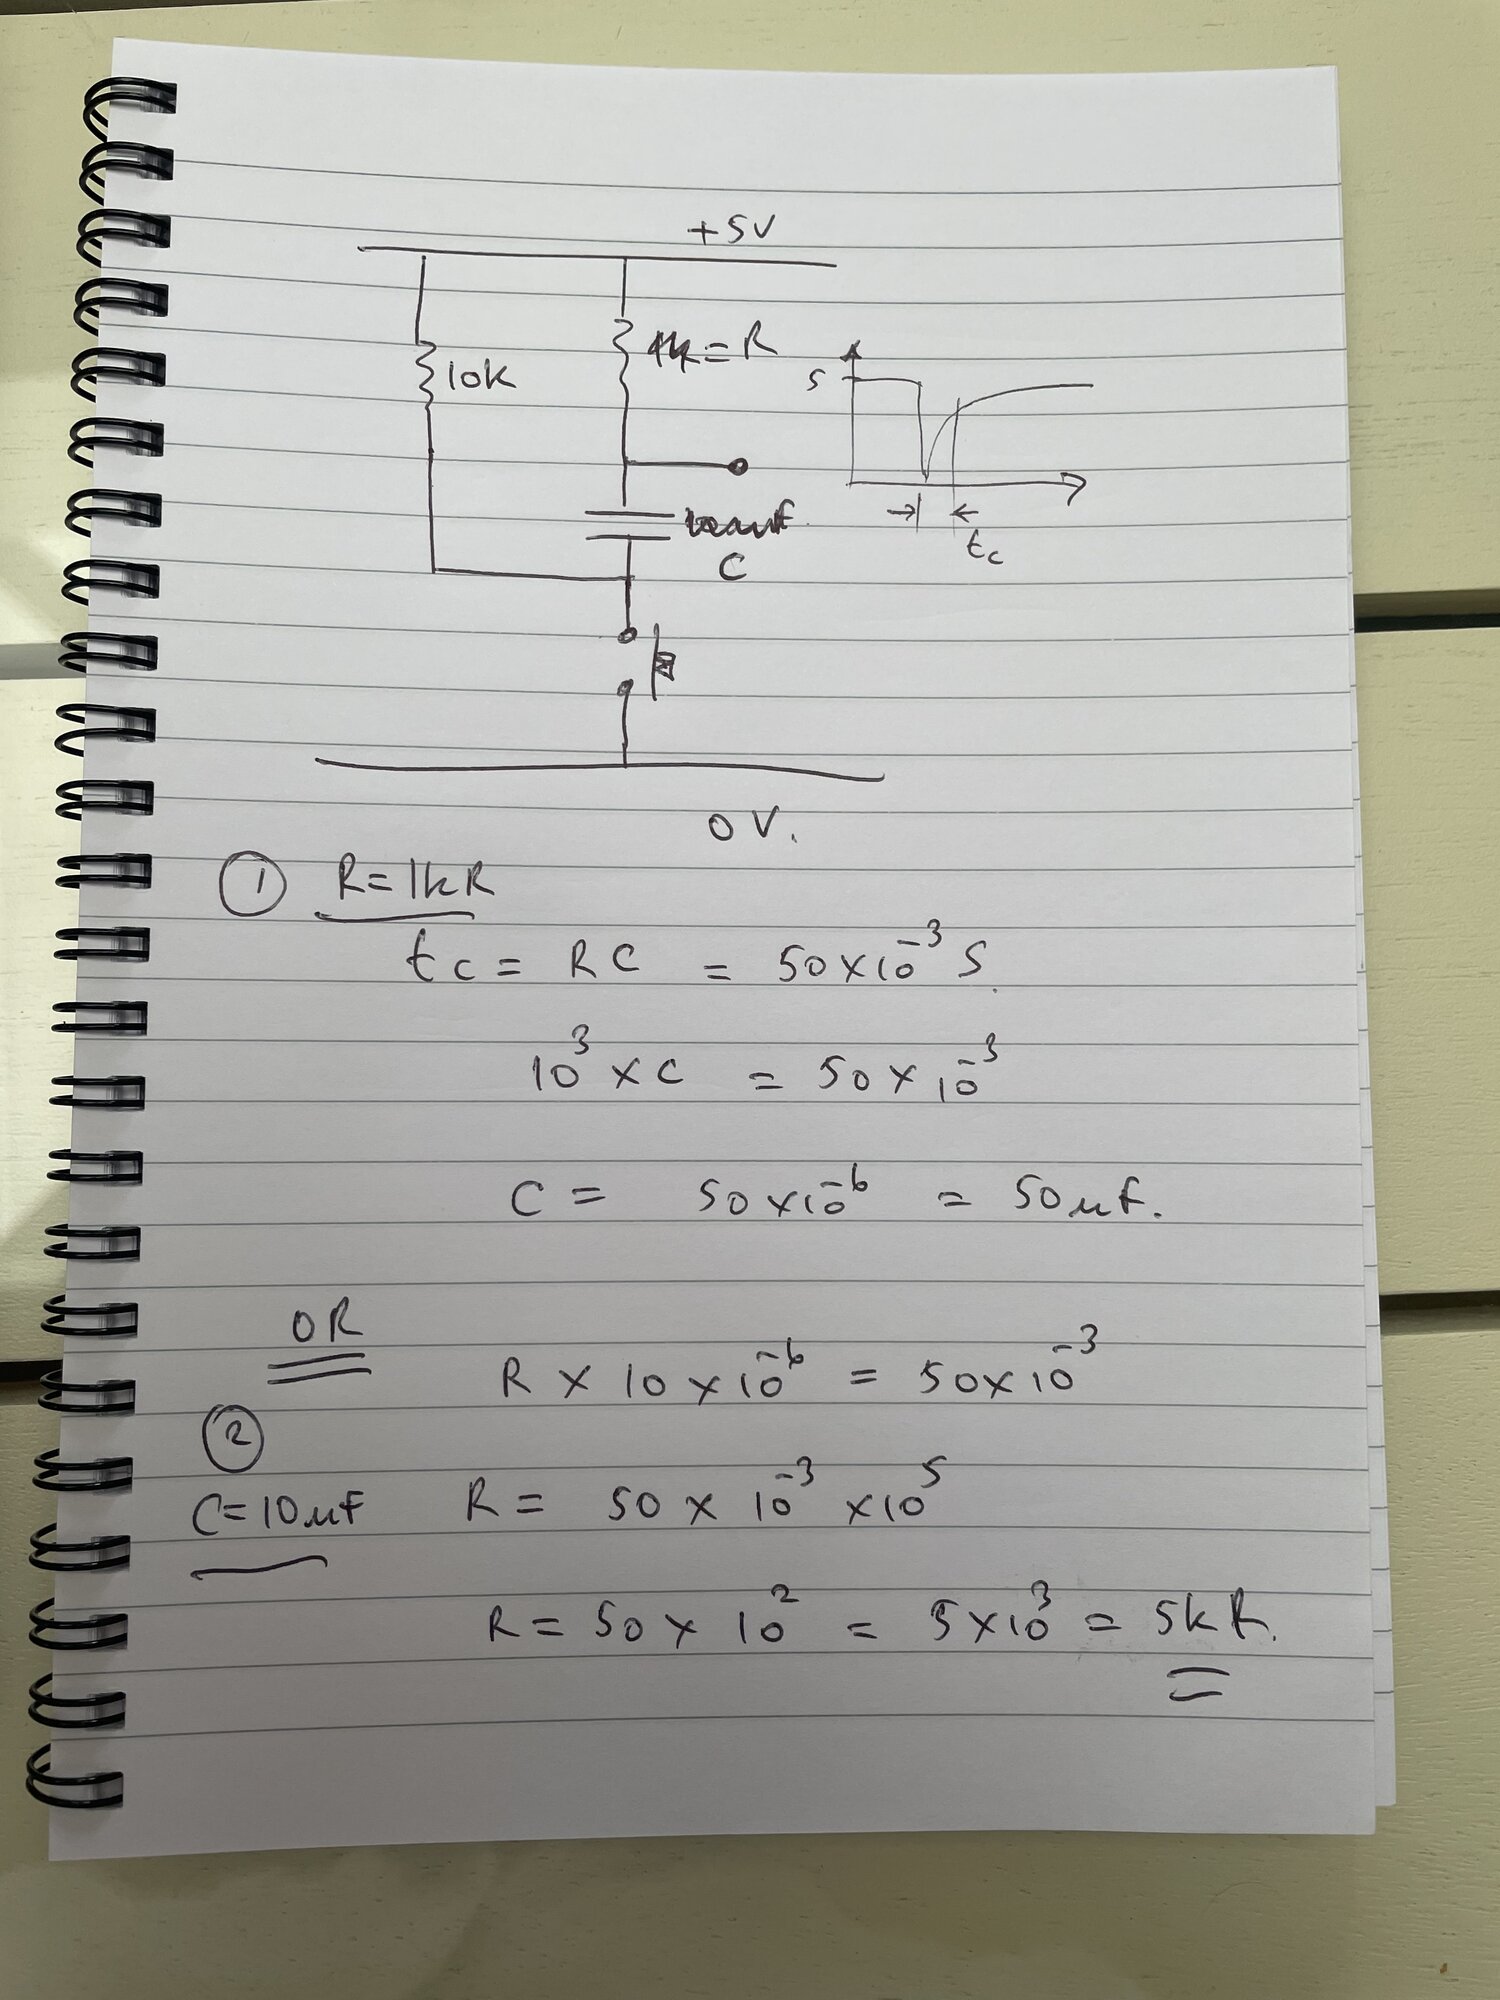 +5V
10k
= R
5
C
tc
0V.
① R=1kR
tc = RC = 50×10⁻³ S.
10³ × C = 50 × 10⁻³
C = 50×10⁻⁶ = 50µF.
OR
R × 10 × 10⁻⁶ = 50×10⁻³
②
C=10µF R = 50 × 10⁻³ ×10⁵
R = 50 × 10² = 5×10³ = 5kR.